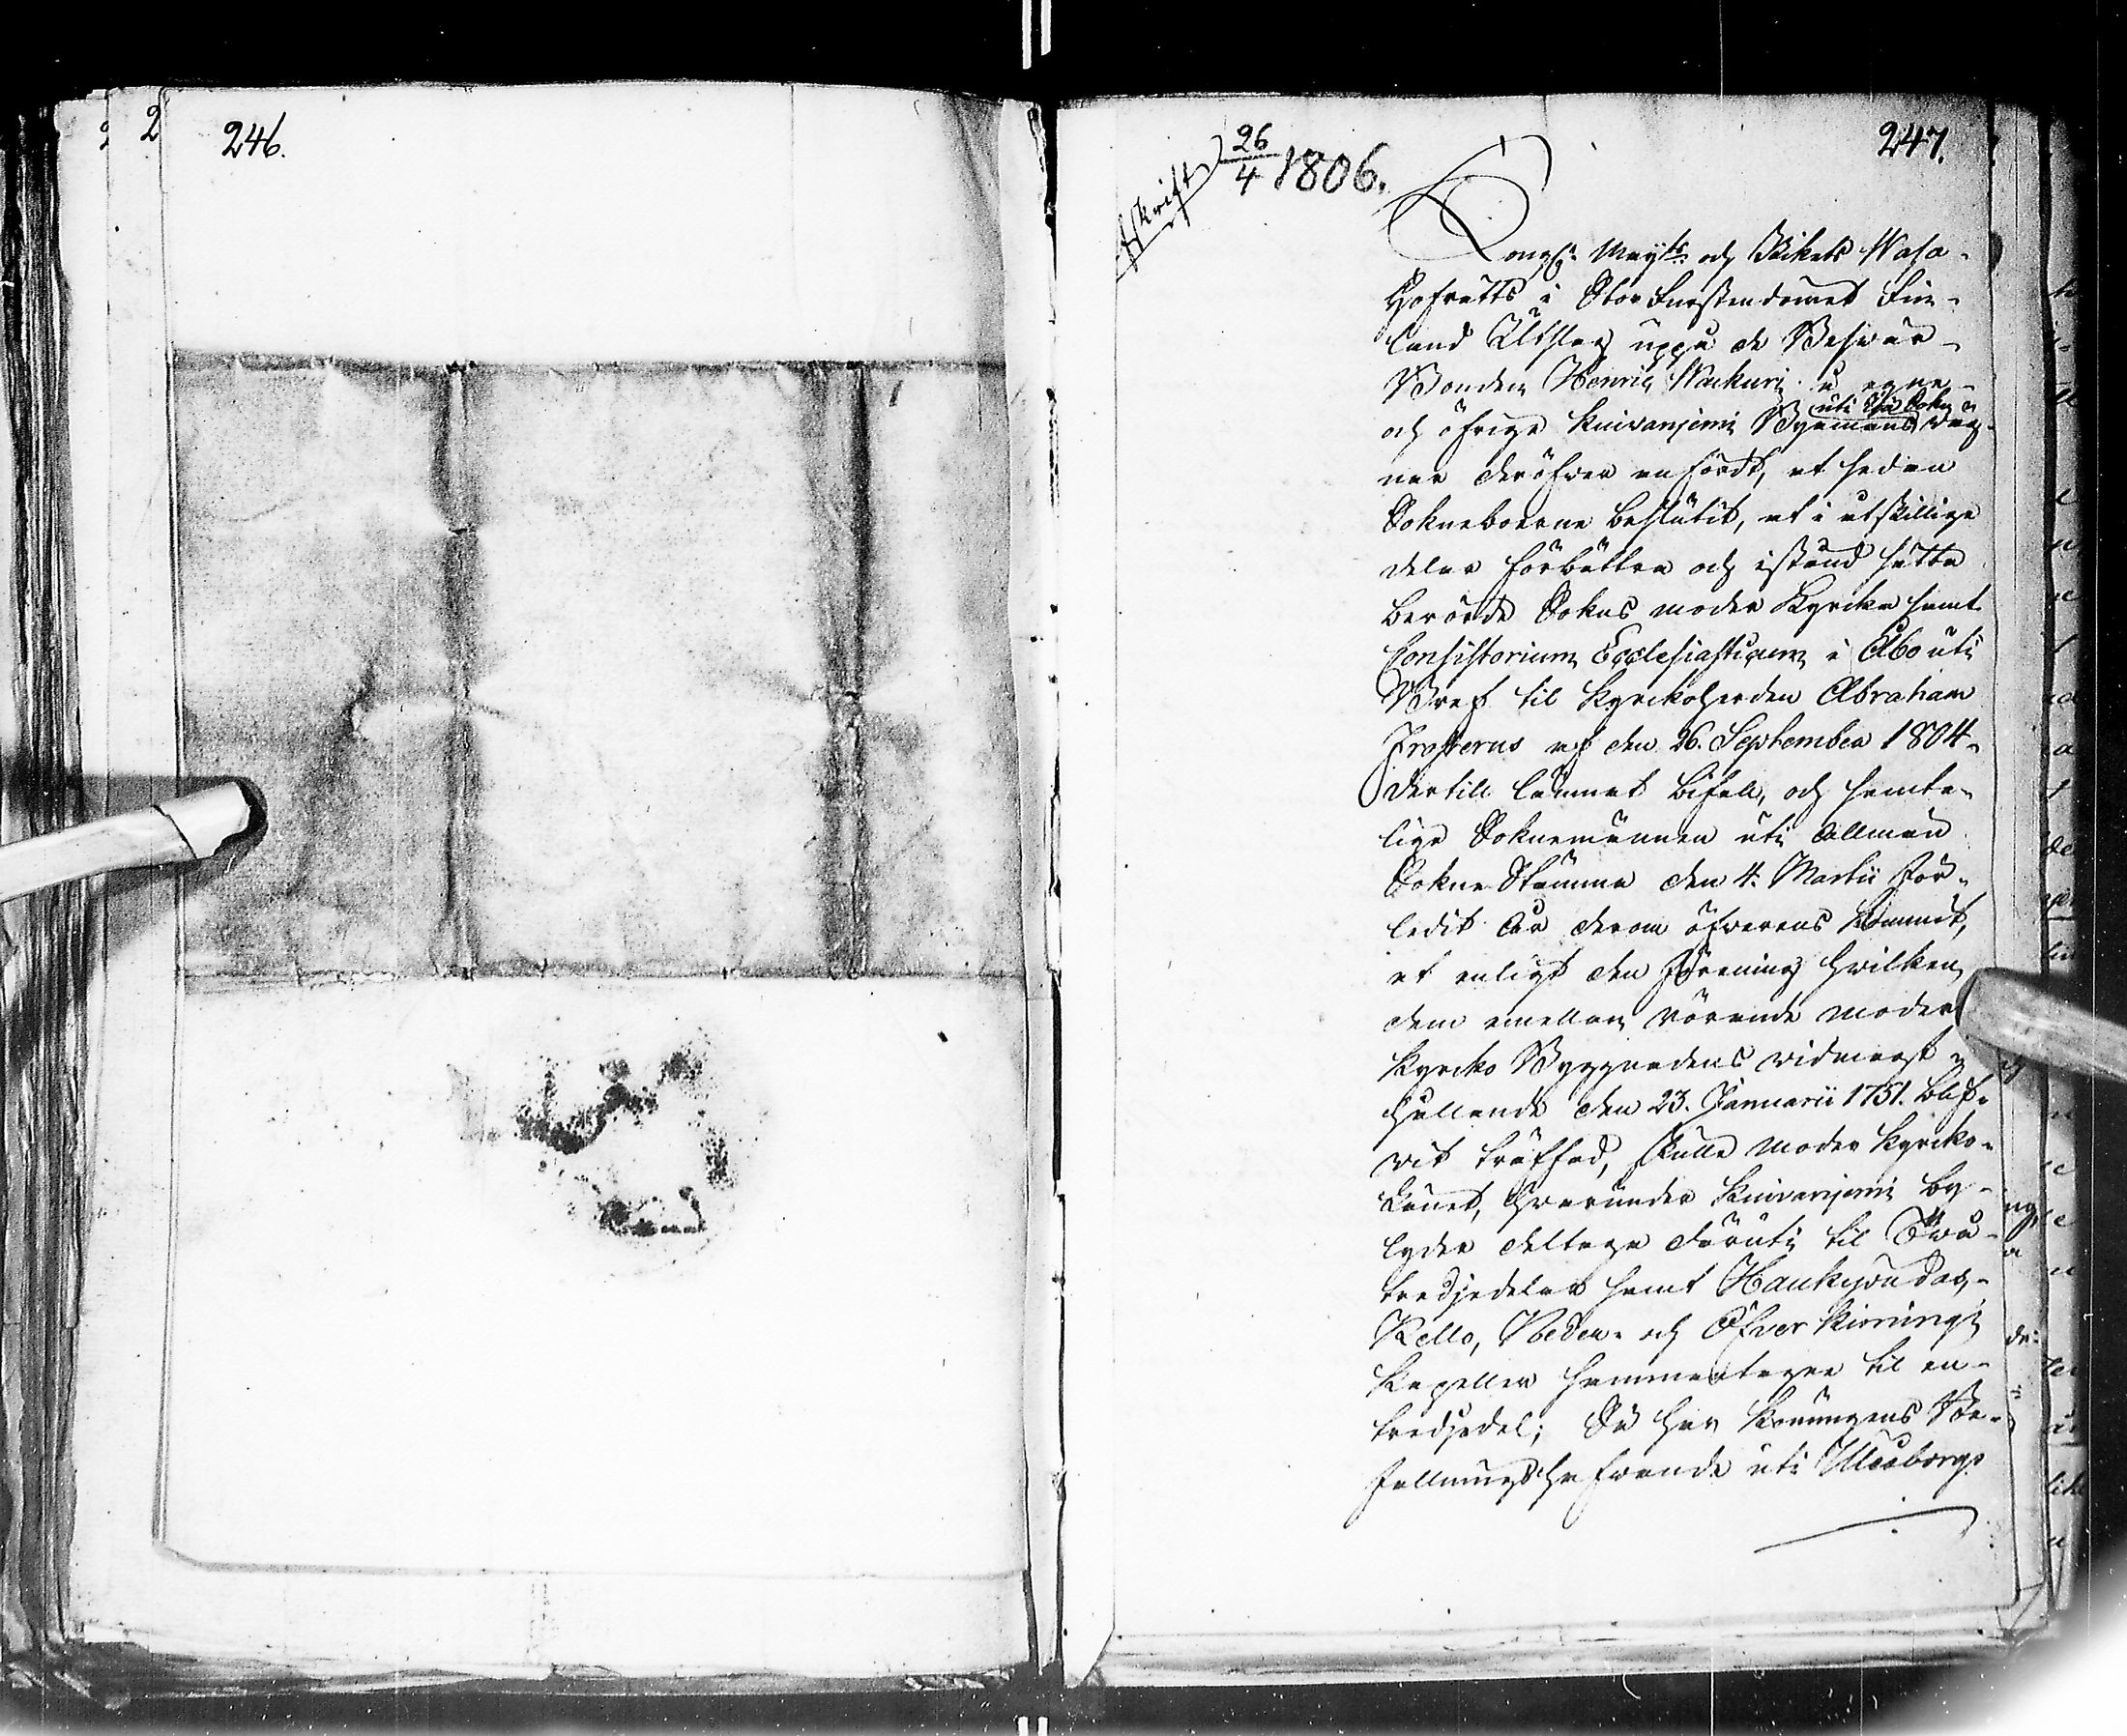 246.
247.
Afskrift
26/4 1806.
Kongl: Maÿts och Rikets Wasa
Hofrätts i StorFurstendömet Fin-
land Utslag uppå de Beswär
Bonden Henric Wackuri å egne
uti Ijå Sokn
och öfrige Kuivaniemi Byamäns väg-
nar deröfver anfördt, at sedan
Sokneboerne beslutit, at i utskillige
delar förbättra och istånd sätta
berörde Sokns moder Kyrcka samt
Consistorium Ecclesiasticum i Åbo uti
Bref til Kyrckoherden Abraham
Frosterus af den 26. September 1804
dertill lämnat bifall, och samte-
lige Soknemännen uti allmän
Sokne Stämma den 4. Martii för-
ledit år derom öfverens kommit,
at enligt den förening hvilken
dem emellan rörande moder
Kyrcko Byggnadens vidmagt
hållande den 23. Januarii 1751. blif-
vit träffad, skulle moder Kyrcko-
Länet, hvarunder Kuivaniemi by
lyder deltaga däruti til Två
tredjedelar samt Haukipudas,
Kello, Neder- och Öfver Kiimingi
Kapeller sammantagne til en
tredjedel; Så har Konungens Be-
fallningshafvande uti Uleåborgs